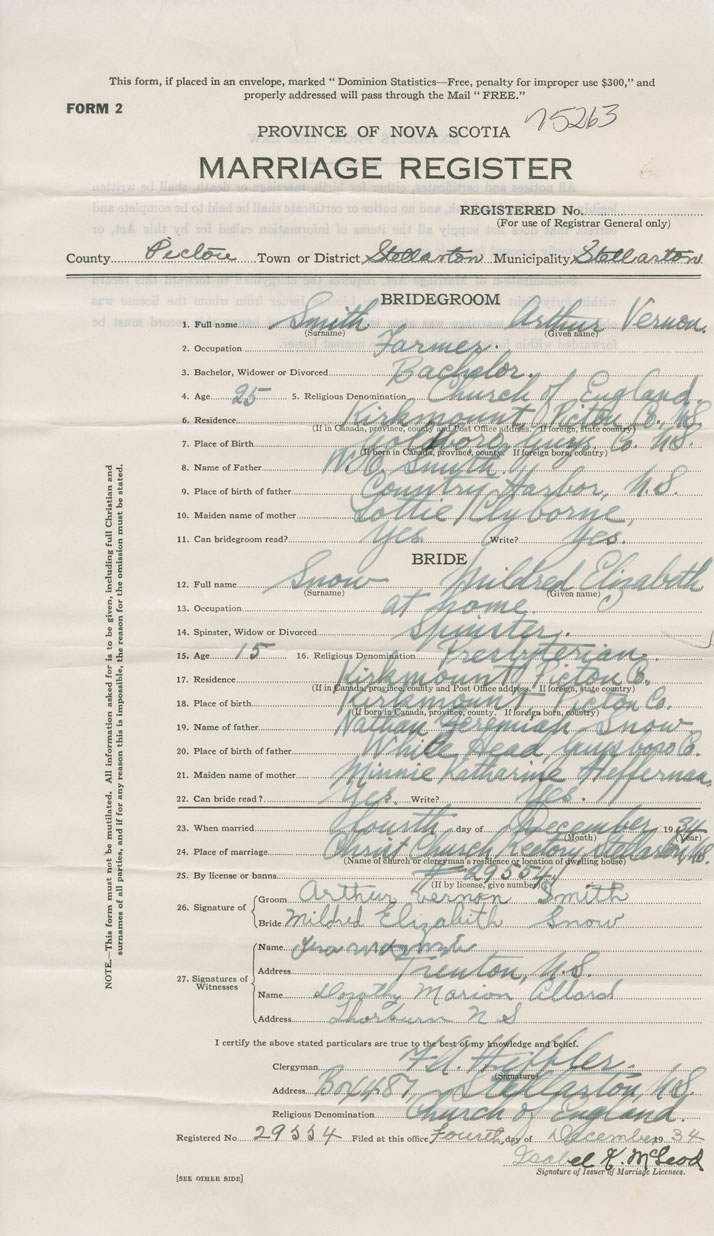 This form, if placed in an envelope, marked “ Dominion Statistics—Free, penalty for improper use $300,” and
properly addressed will pass through the Mail “ FREE.”
FORM 2
75263
PROVINCE OF NOVA SCOTIA
MARRIAGE REGISTER
REGISTERED No.
(For use of Registrar General only)
County Pictou Town or District Stellarton Municipality Stellarton
BRIDEGROOM
1. Full name Smith Arthur Vernon.
(Surname) (Given name)
2. Occupation Farmer.
3. Bachelor, Widower or Divorced Bachelor.
4. Age 25 5. Religious Denomination Church of England
6. Residence Kirkmount, Pictou Co., N.S.
(If in Canada, province, county and Post Office address. If foreign, state country)
7. Place of Birth Goldboro, Guys. Co. N.S.
(If born in Canada, province, county. If foreign born, country)
8. Name of Father Smith,
9. Place of birth of father Country Harbor, N.S.
10. Maiden name of mother Lottie Clyborne,
11. Can bridegroom read? Yes Write? Yes.
BRIDE
12. Full name Snow Mildred Elizabeth
(Surname) (Given name)
13. Occupation at home.
14. Spinster, Widow or Divorced Spinster.
15. Age 15 16. Religious Denomination Presbyterian.
17. Residence Kirkmount, Pictou Co.
(If in Canada, province, county and Post Office address. If foreign, state country)
18. Place of birth Kirkmount Pictou Co.
(If born in Canada, province, county. If foreign born, country)
19. Name of father Nathan Jeremiah Snow
20. Place of birth of father White Head, Guysboro Co.
21. Maiden name of mother Minnie Katharine Hefferman,
22. Can bride read? Yes. Write? Yes.
23. When married fourth day of December 1934
(Month) (Year)
24. Place of marriage Christ Church Rectory, Stellarton, N.S.
(Name of church or clergyman's residence or location of dwelling house)
25. By license or banns # 29554.
(If by license, give number)
26. Signature of Groom Arthur Vernon Smith
Bride Mildred Elizabeth Snow
27. Signatures of Witnesses
Name
Address Trenton, N.S.
Name Dorothy Marion Allard
Address Thorburn N S
I certify the above stated particulars are true to the best of my knowledge and belief.
Clergyman
(Signature)
Address Box 487, Stellarton, N.S.
Religious Denomination Church of England.
Registered No. 29554 Filed at this office Fourth day of December 1934
Isabel K. McLeod
Signature of Issuer of Marriage Licenses.
[SEE OTHER SIDE]
NOTE.—This form must not be mutilated. All information asked for is to be given, including full Christian and
surnames of all parties, and if for any reason this is impossible, the reason for the omission must be stated.